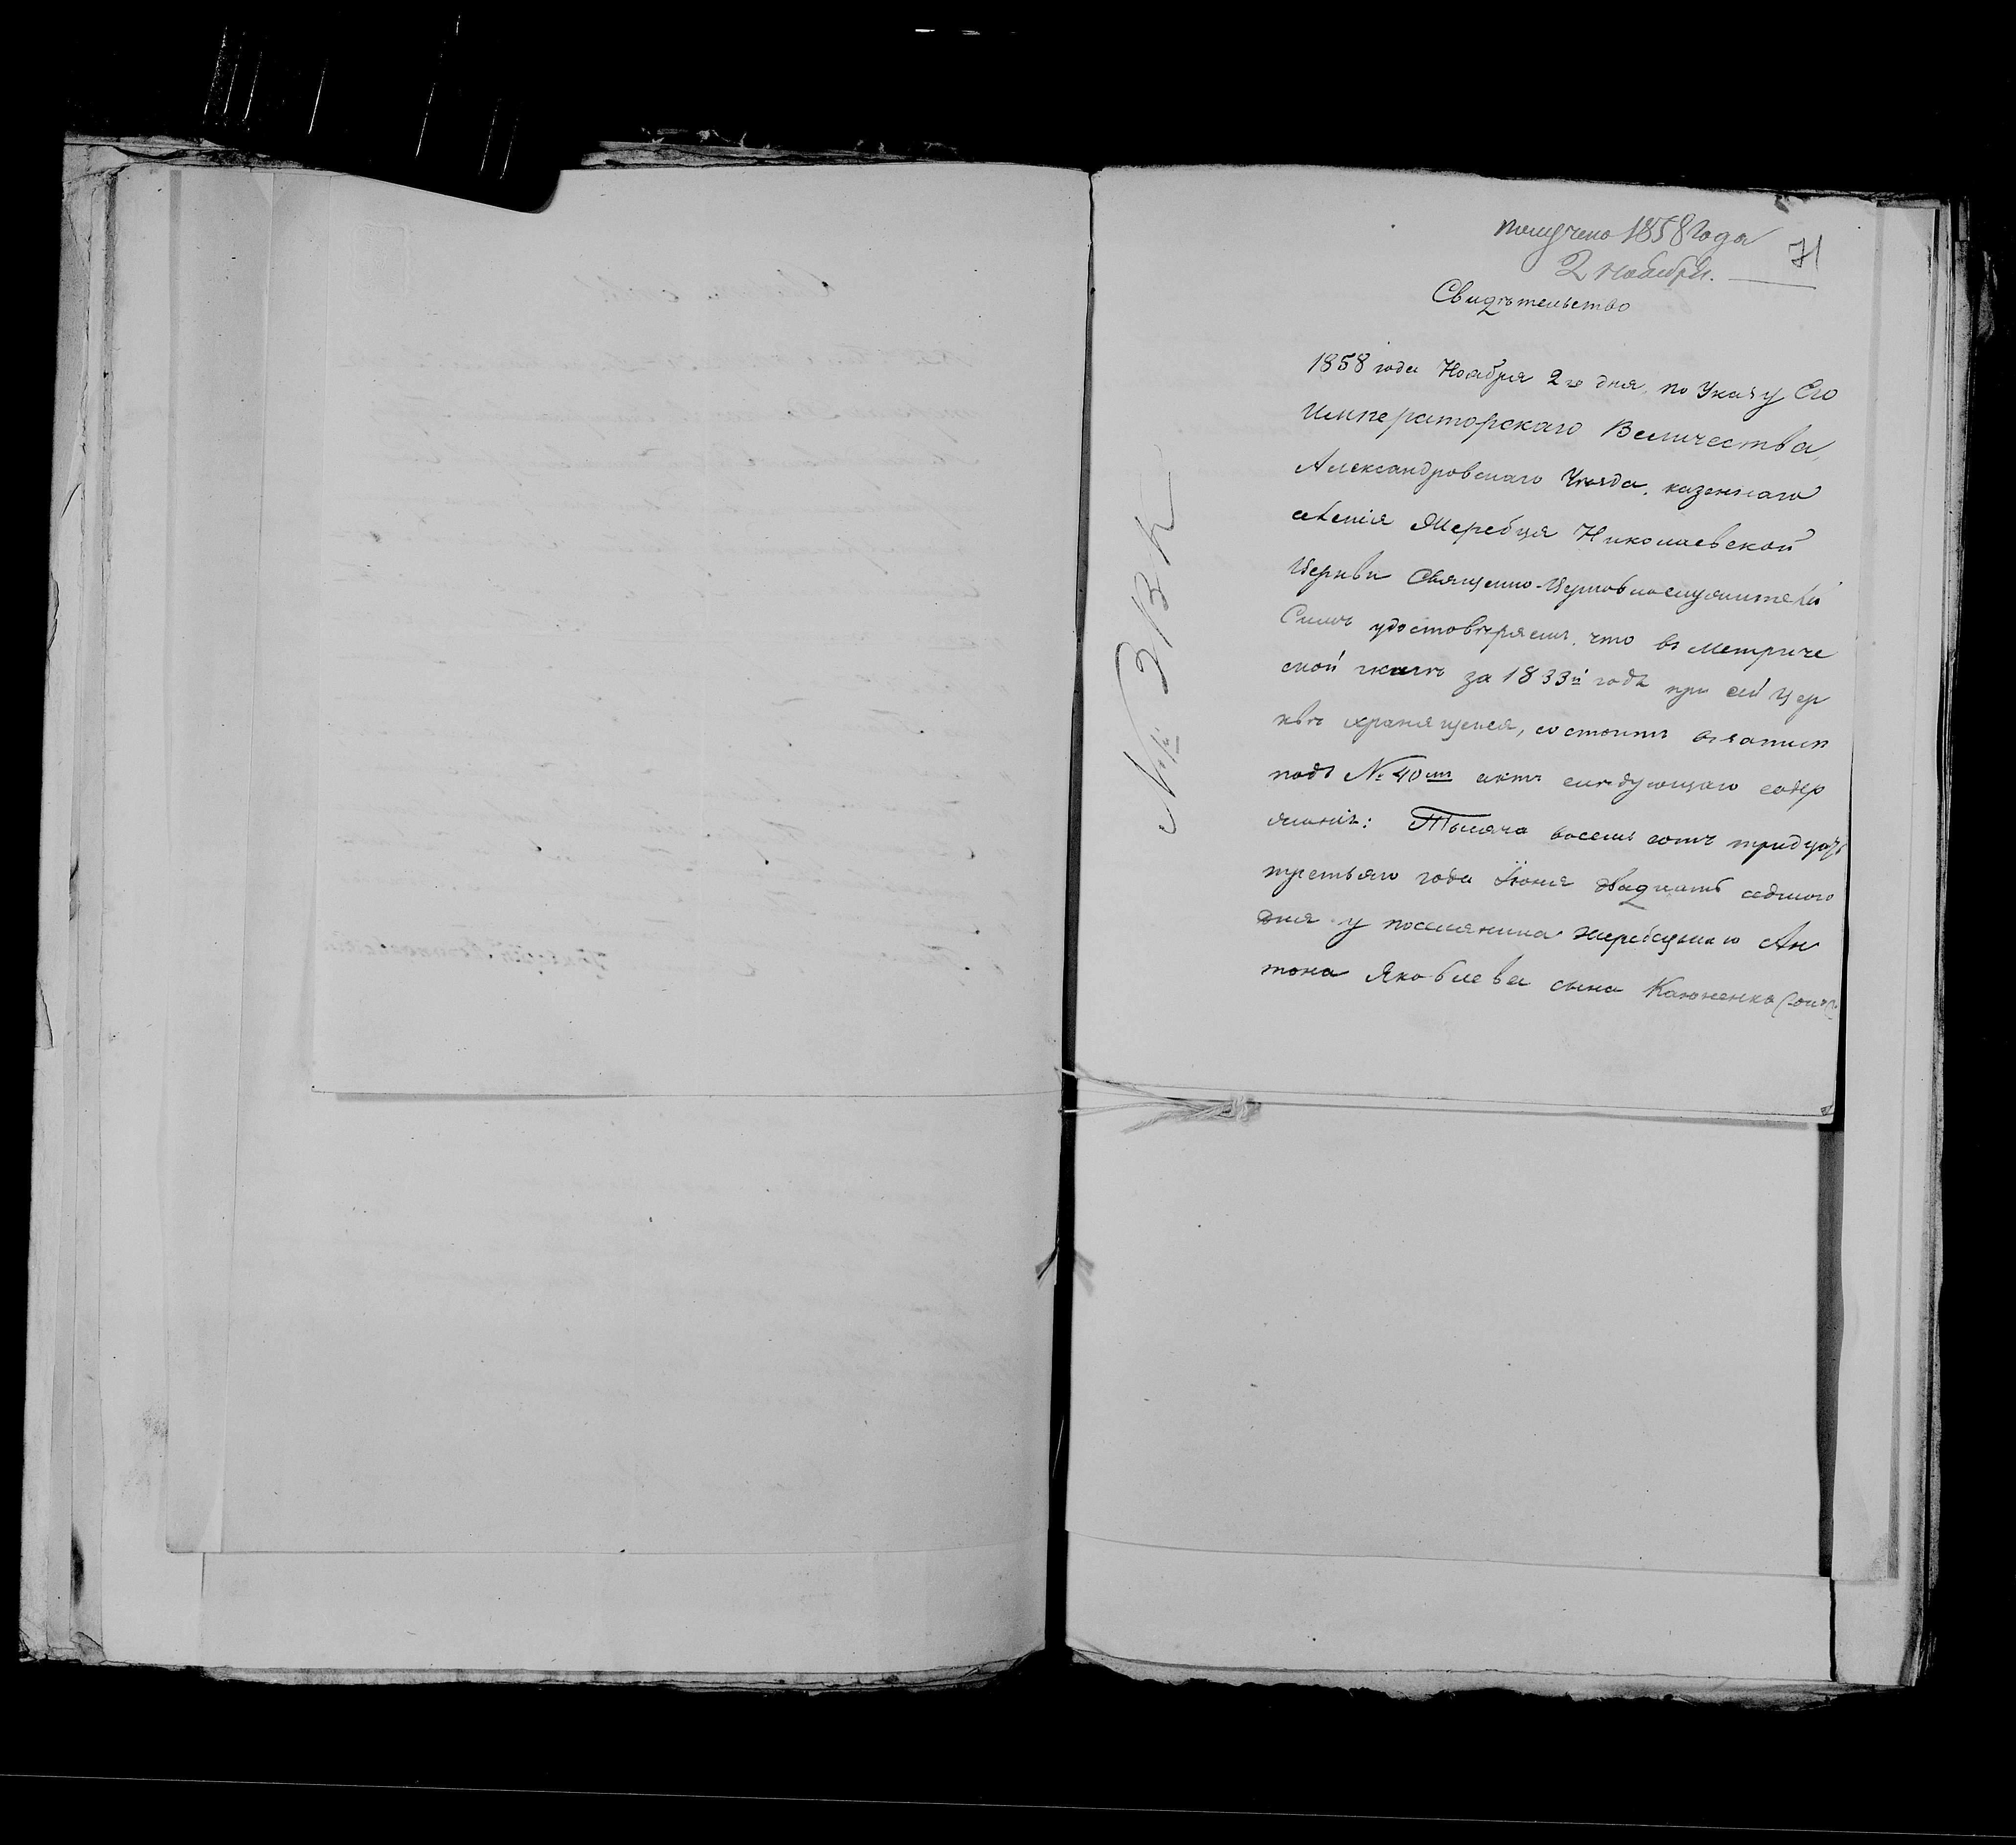 получено 1858 года
2 ноября.
71
Свидѣтельство
1858 года Ноября 2го дня, по Указу Его
Императорскаго Величества,
Александровскаго Уѣзда, казеннаго
селенія Жеребця Николаевской
Церкви Священно-Церковнослужители
Симъ удостовѣряемъ, что въ метриче
ской книгѣ за 1833й годъ при сей цер
квѣ хранящейся, состоитъ записи
подъ № 40мъ актъ слѣдующаго содер
жанія: Тысяча восемь сотъ тридцать
третьяго года Іюня двадцать седмого
дня у поселянина Жеребецкаго Ан
тона Яковлева сына Каюненко
№й